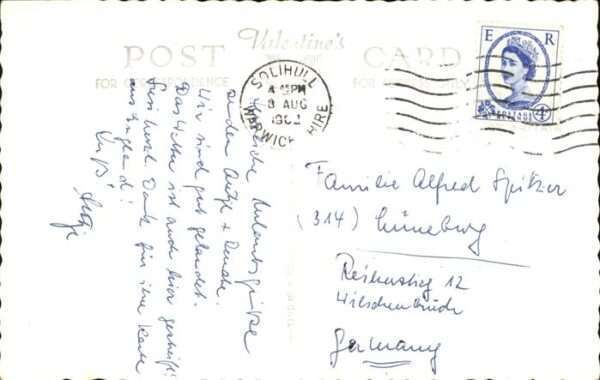 POST
Valentine's
CARD
FOR CORRESPONDENCE
FOR
SOLIHULL
4 PM
8 AUG
WARWICKSHIRE
E R
POSTAGE
4D
Urlaubsgrüße
senden Antje +
Wir sind gut gelandet.
Das Wetter ist auch hier
herzl. Dank für ihre Karte
aus England!
Antje
Familie Alfred Spitzer
(314) Lüneburg
Reiherstieg 12
Wilschenbruch
Germany